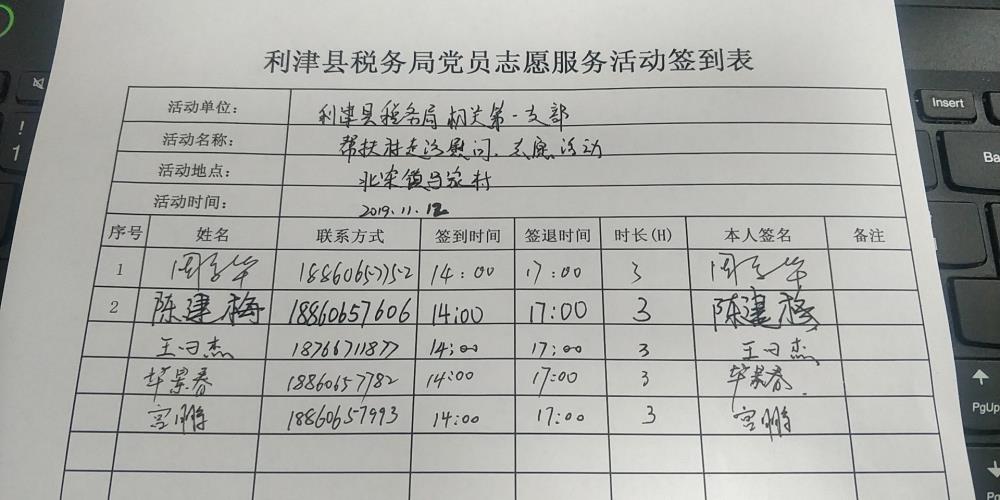 利津县税务局党员志愿服务活动签到表
活动单位: 利津县税务局机关第一支部
活动名称: 帮扶村走访慰问、志愿活动
活动地点: 北宋镇马家村
活动时间: 2019.11.12
序号 姓名 联系方式 签到时间 签退时间 时长(H) 本人签名 备注
1 18860657752 14:00 17:00 3
2 陈建梅 18860657606 14:00 17:00 3 陈建梅
王曰杰 18766711877 14:00 17:00 3 王曰杰
毕景春 18860657782 14:00 17:00 3 毕景春
宫鹏 18860657993 14:00 17:00 3 宫鹏
Insert
Ba
PgUp
!
1